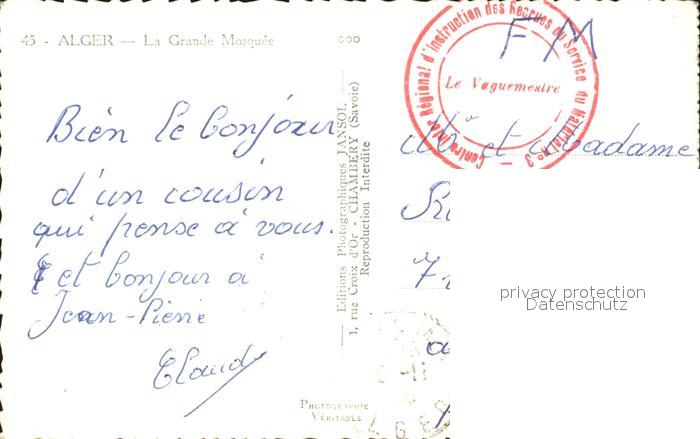 45 - ALGER — La Grande Mosquée
Bien le bonjour
d'un cousin
qui pense à vous.
et bonjour à
Jean-Pierre
Claude
Editions Photographiques JANSOL
1, rue Croix d'Or - CHAMBERY (Savoie)
Reproduction Interdite
PHOTOGRAPHIE
VÉRITABLE
FM
Centre Régional d'Instruction des Recrues du Service du Matériel N° 3
Le Vaguemestre
et Madame
privacy protection
Datenschutz